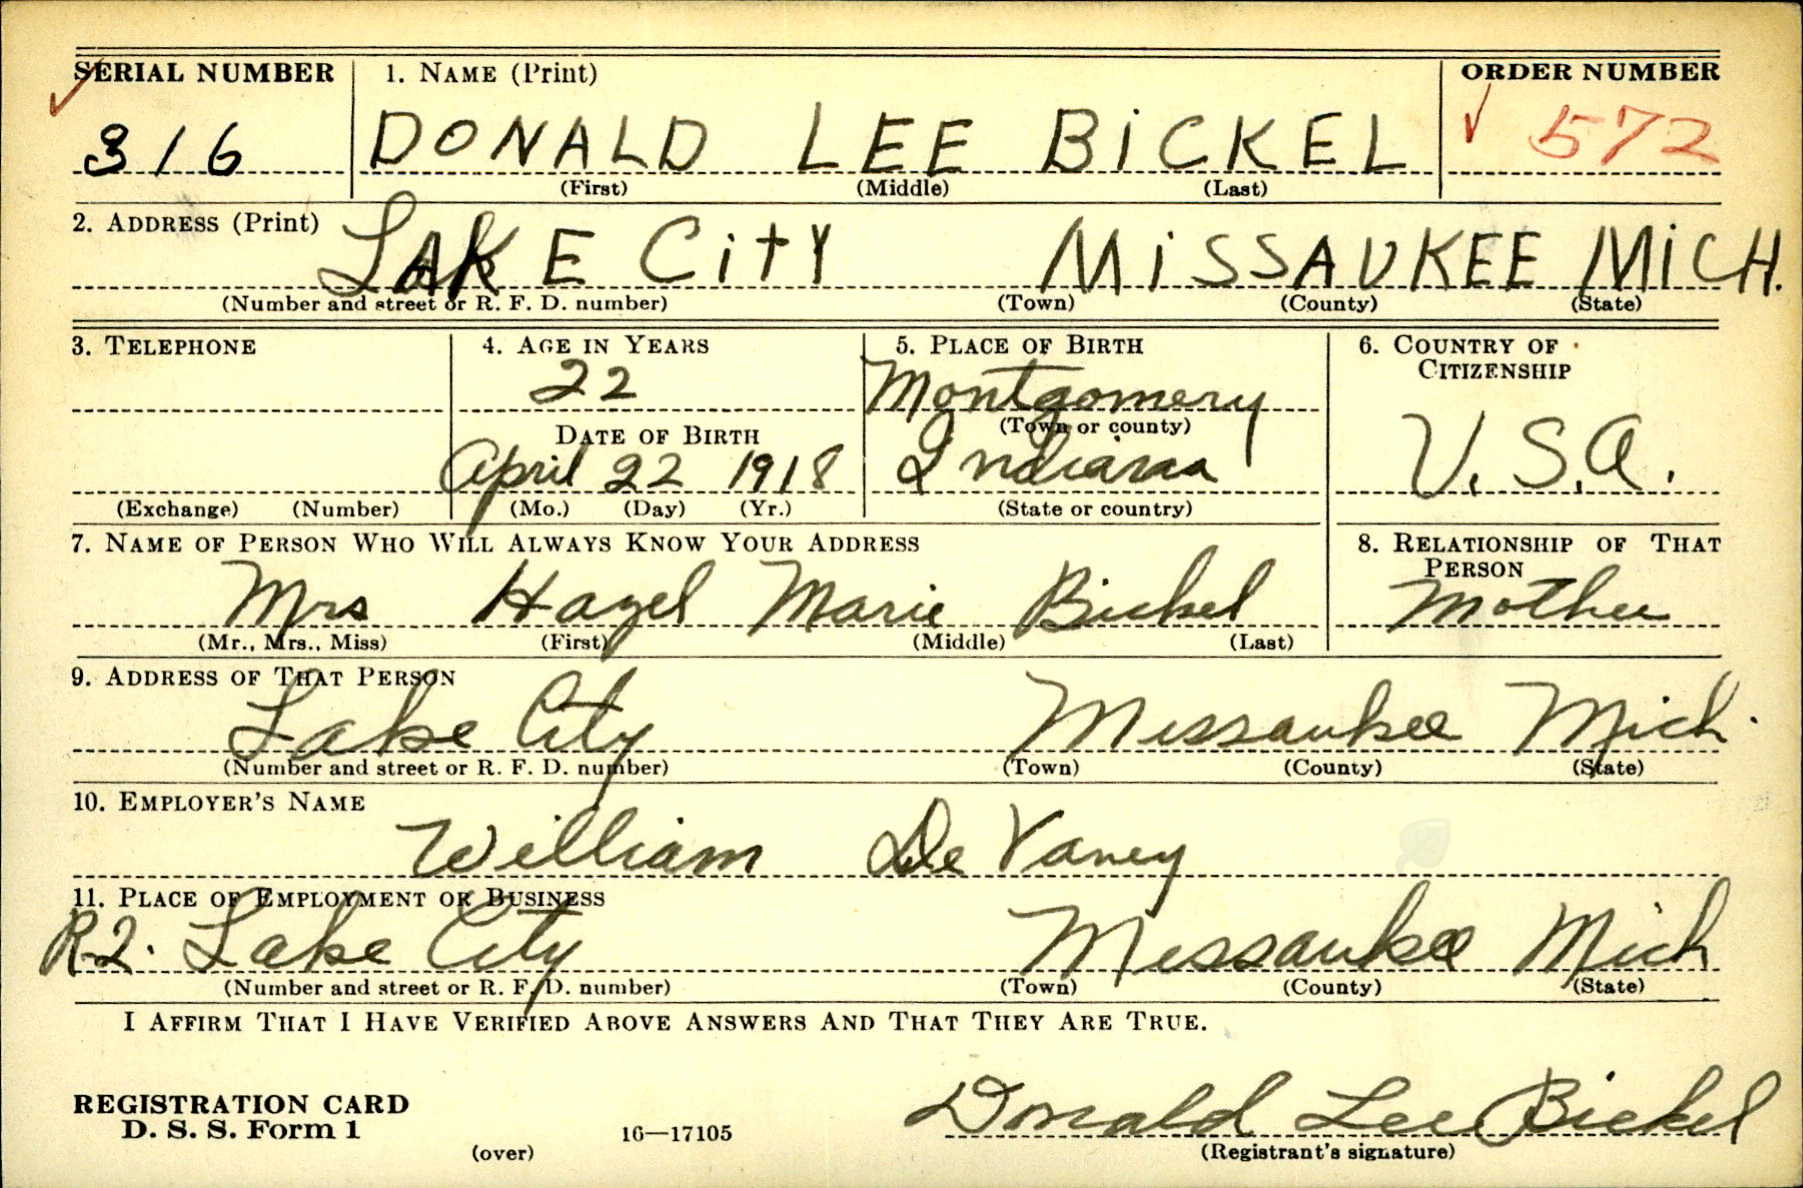 SERIAL NUMBER 1. NAME (Print) ORDER NUMBER
316 DONALD LEE BICKEL 572
(First) (Middle) (Last)
2. ADDRESS (Print)
LAKE CITY MISSAUKEE MICH.
(Number and street or R. F. D. number) (Town) (County) (State)
3. TELEPHONE 4. AGE IN YEARS 5. PLACE OF BIRTH 6. COUNTRY OF CITIZENSHIP
22 Montgomery
DATE OF BIRTH (Town or county)
April 22 1918 Indiana U.S.A.
(Exchange) (Number) (Mo.) (Day) (Yr.) (State or country)
7. NAME OF PERSON WHO WILL ALWAYS KNOW YOUR ADDRESS 8. RELATIONSHIP OF THAT PERSON
Mrs Hazel Marie Bickel Mother
(Mr., Mrs., Miss) (First) (Middle) (Last)
9. ADDRESS OF THAT PERSON
Lake City Missaukee Mich.
(Number and street or R. F. D. number) (Town) (County) (State)
10. EMPLOYER'S NAME
William De Vaney
11. PLACE OF EMPLOYMENT OR BUSINESS
R2. Lake City Missaukee Mich
(Number and street or R. F. D. number) (Town) (County) (State)
I AFFIRM THAT I HAVE VERIFIED ABOVE ANSWERS AND THAT THEY ARE TRUE.
REGISTRATION CARD
D. S. S. Form 1 Donald Lee Bickel
(over) 16—17105 (Registrant's signature)